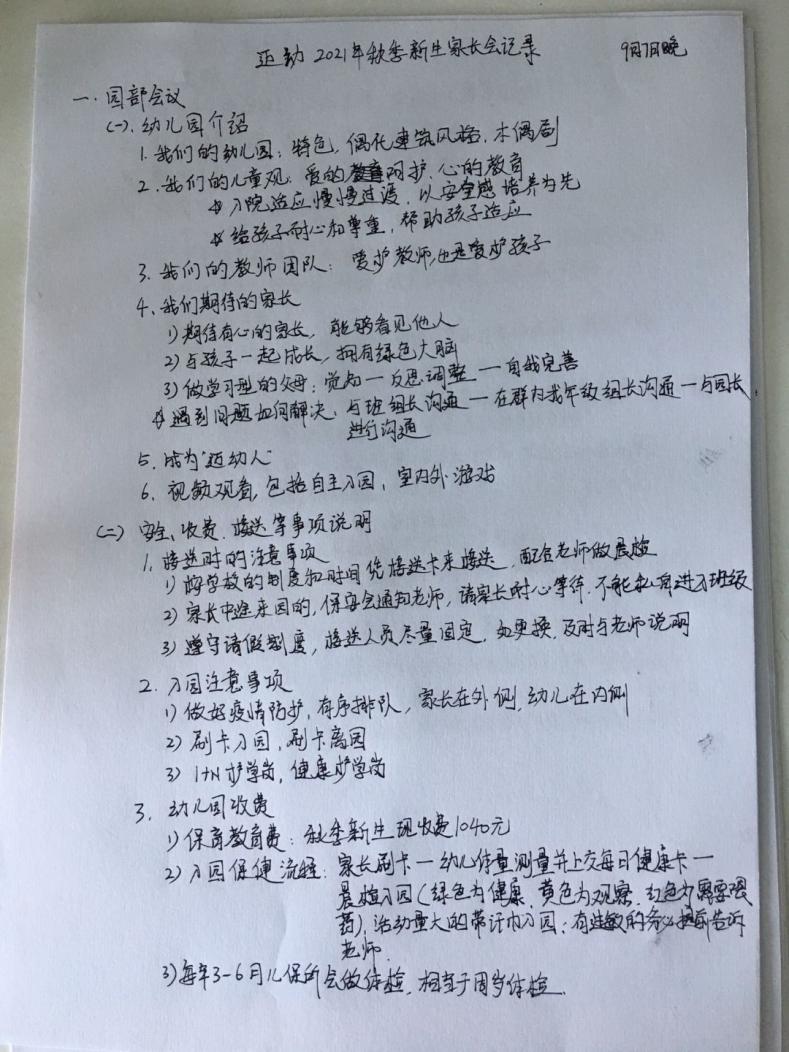 迈幼 2021年秋季新生家长会记录 9月7日晚
一.园部会议
(一).幼儿园介绍
1.我们的幼儿园:特色,偶化建筑风格.木偶剧
2.我们的儿童观:爱的呵护.心的教育
入院适应慢慢过渡.以安全感培养为先
给孩子耐心和尊重,帮助孩子适应
3.我们的教师团队:爱护教师,也是爱护孩子
4.我们期待的家长
1)期待有心的家长,能够看见他人
2)与孩子一起成长,拥有绿色大脑
3)做学习型的父母:觉知—反思调整—自我完善
遇到问题如何解决:与班组长沟通—在群内找年级组长沟通—与园长
进行沟通
5.成为"迈幼人"
6.视频观看,包括自主入园,室内外游戏
(二)安全、收费.接送等事项说明
1.接送时的注意事项
1)按学校的制度和时间凭接送卡来接送,配合老师做晨检
2)家长中途来园的,保安会通知老师,请家长耐心等待,不能私自进入班级
3)遵守请假制度,接送人员尽量固定,如更换,及时与老师说明
2.入园注意事项
1)做好疫情防护,有序排队,家长在外侧,幼儿在内侧
2)刷卡入园,刷卡离园
3)1+N护学岗,健康护学岗
3.幼儿园收费
1)保育教育费:秋季新生现收费1040元
2)入园保健流程:家长刷卡—幼儿体量测量并上交每日健康卡—
晨检入园(绿色为健康,黄色为观察,红色为需要喂
药),活动量大的带汗巾入园;有过敏的务必提前告诉
老师.
3)每年3-6月儿保所会做体检,相当于周岁体检.